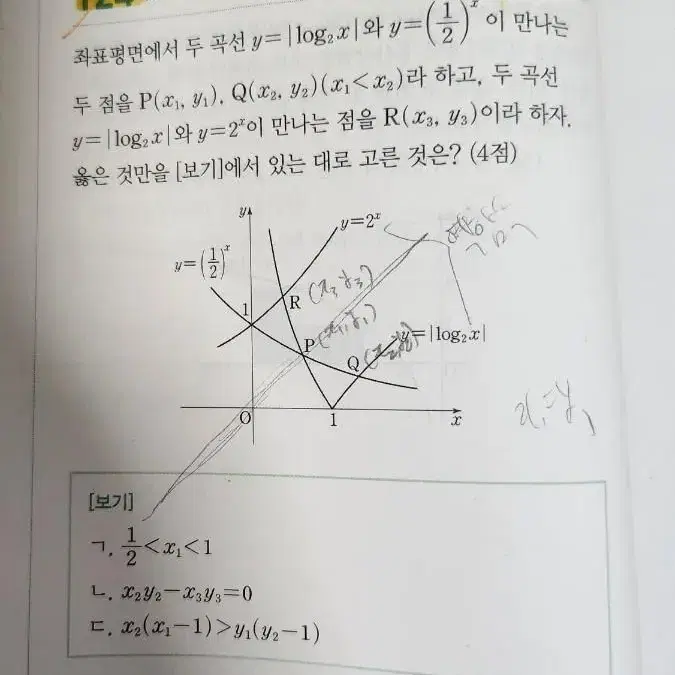 124
좌표평면에서 두 곡선 y=|log₂x|와 y=(1/2)^x 이 만나는
두 점을 P(x₁, y₁), Q(x₂, y₂)(x₁<x₂)라 하고, 두 곡선
y=|log₂x|와 y=2^x이 만나는 점을 R(x₃, y₃)이라 하자.
옳은 것만을 [보기]에서 있는 대로 고른 것은? (4점)
y
y=2^x
y=(1/2)^x
R (x₃ y₃)
1
P (x₁, y₁)
y=|log₂x|
Q (x₂, y₂)
x₁=y₁
O
1
x
[보기]
ㄱ. 1/2<x₁<1
ㄴ. x₂y₂-x₃y₃=0
ㄷ. x₂(x₁-1)>y₁(y₂-1)